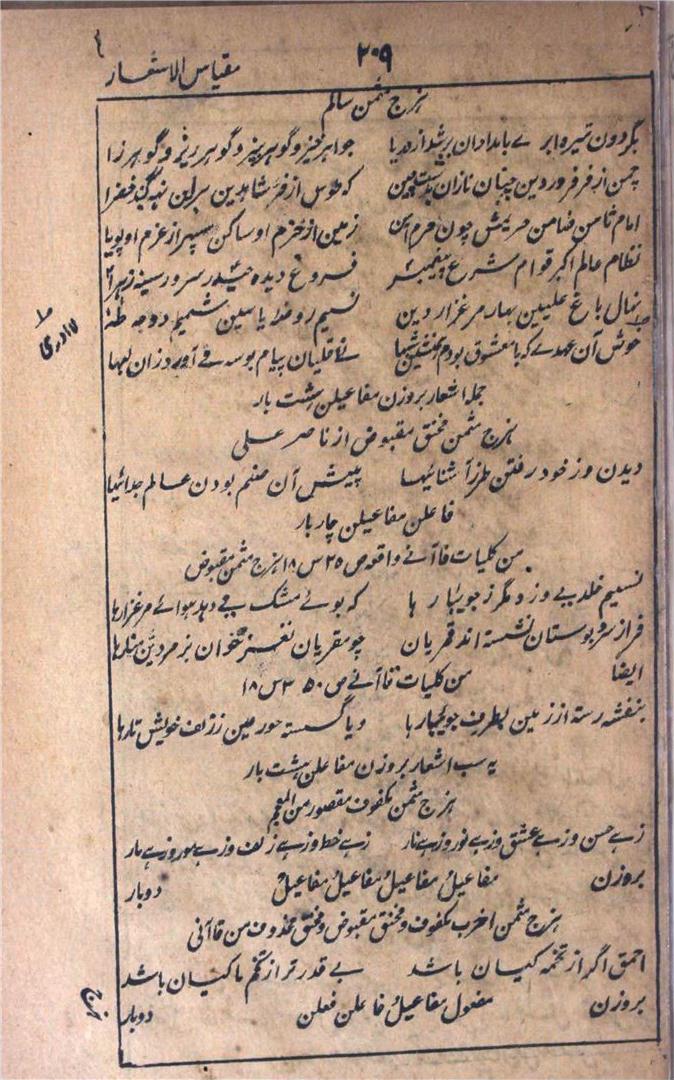 ۲۰۹
مقیاس الاشعار
ہزج مثمن سالم
بگردون تیرہ ابرے بامدادان برشد از دریا جواہر خیز و گوہر بیز و گوہر ریز و گوہر زا
چمن از فر فروردین چنان نازان بدشت چین کہ طوس از فر شاہ دین برین نہ گنبد خضرا
امام ثامن ضامن حریمش چون حرم آمن زمین از حزم او ساکن سپہر از عزم او پویا
نظام عالم اکبر قوام شرع پیغمبر فروغ دیدہ حیدر سرور سینہ زہرا
نہال باغ علیین بہار مرغزار دین نسیم روضہ یاسین شمیم دوحہ طٰہٰ
خوش آن عہدے کہ با معشوق بودم ہمنشین شبہا نے قلیان پیام بوسہ مے آورد زان لبہا
لا ادری
جملہ اشعار بروزن مفاعیلن ہشت بار
ہزج مثمن مخنق مقبوض از ناصر علی
دیدن وز خود رفتن طرز آشنائیہا پیش آن صنم بودن عالم جدائیہا
فاعلن مفاعیلن چار بار
من کلیات قاآنے واقع ص ۳۵ س ۱۸ ہزج مثمن مقبوض
نسیم خلد مے وزد مگر ز جویبارہا کہ بوئے مشک مے دہد ہوائے مرغزارہا
فراز سرو بوستان نشستہ اند قمریان چو مقریان نغز خوان بزمردین منارہا
ایضا من کلیات قاآنے ص ۳۵۰ س ۱۸
بنفشہ رستہ از زمین بطرف جویبارہا و یا گسستہ حور عین ز زلف خویش تارہا
یہ سب اشعار بروزن مفاعلن ہشت بار
ہزج مثمن مکفوف مقصور من المعجم
زہے حسن و زہے عشق و زہے نور و زہے نار زہے خط و زہے زلف و زہے مور و زہے مار
بروزن مفاعیلُ مفاعیلُ مفاعیلُ مفاعیلْ دوبار
ہزج مثمن اخرب مکفوف و مخنق مقبوض و مخنق محذوف من قاآنی
احمق اگر از تخمہ کیان باشد بے قدر تر از تخم ماکیان باشد
بروزن مفعول مفاعیلُ فاعلن فعلن دوبار
ہزج